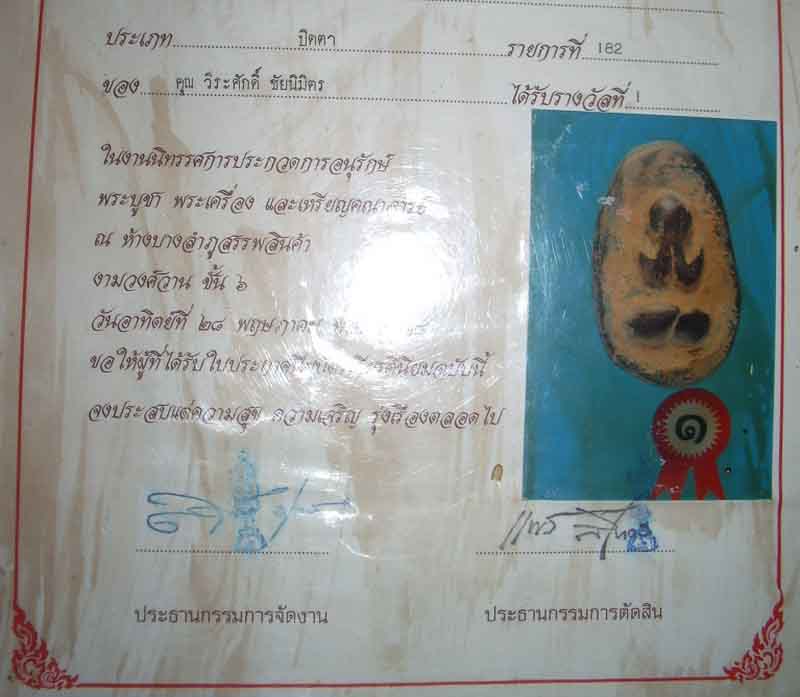 ประเภท ปิดตา รายการที่ 182
ของ คุณ วิระศักดิ์ ชัยนิมิตร ได้รับรางวัลที่ 1
ในงานนิทรรศการประกวดการอนุรักษ์
พระบูชา พระเครื่อง และเหรียญคณาจารย์
ณ ห้างบางลำภูสรรพสินค้า
งามวงศ์วาน ชั้น ๖
วันอาทิตย์ที่ ๒๘ พฤษภาคม
ขอให้ผู้ที่ได้รับใบประกาศนียบัตรเกียรตินิยมฉบับนี้
จงประสบแต่ความสุข ความเจริญ รุ่งเรืองตลอดไป
๑
ประธานกรรมการจัดงาน ประธานกรรมการตัดสิน